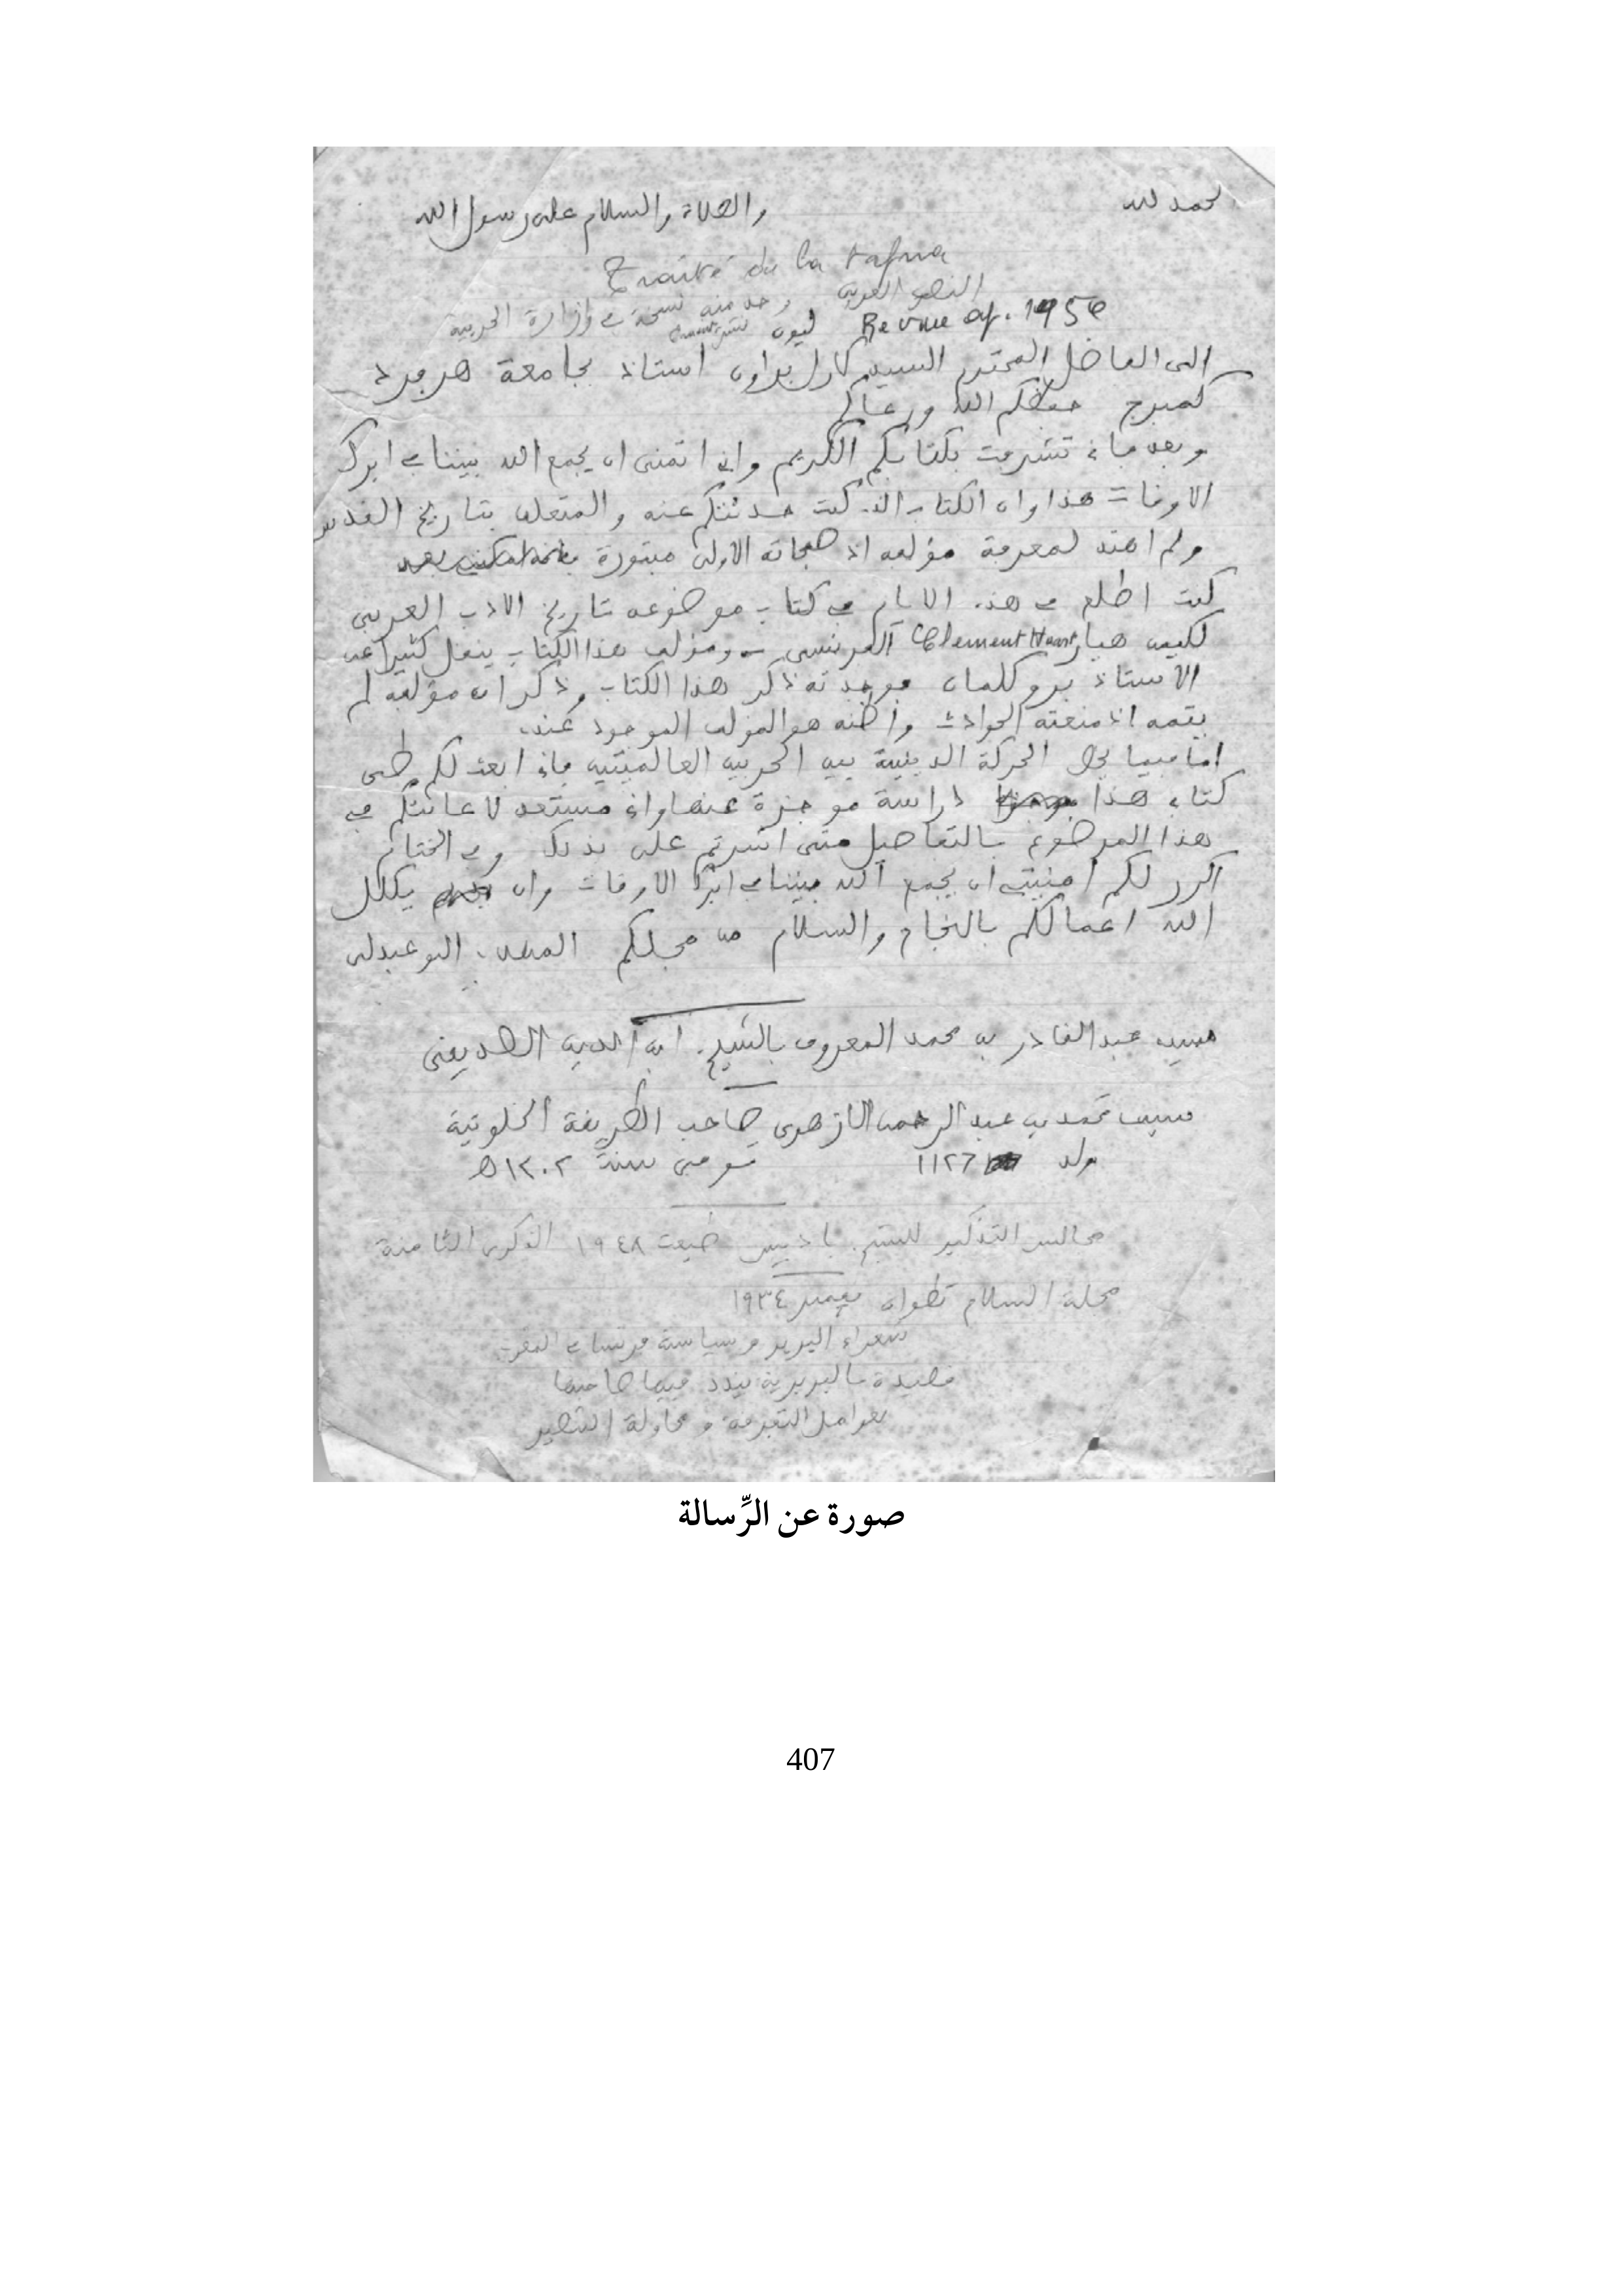 الحمد لله والصلاة والسلام على رسول الله
Traité de la tafna
النص العربي وجد منه نسخة في وزارة الحربية
Revue af. 1950 ليون نشر
الى الفاضل المحترم السيد كارل براون استاذ بجامعة هرفرد
كمبرج حفظكم الله ورعاكم
وبعد فاني تشرفت بكتابكم الكريم واني اتمنى ان يجمع الله بيننا في ابرك
الاوقات هذا وان الكتاب الذي كنت حدثتكم عنه والمتعلق بتاريخ القدس
ولم اهتد لمعرفة مؤلفه اذ صفحاته الاولى مبتورة
كنت اطلع في هذه الايام في كتاب موضوعه تاريخ الادب العربي
لكليمن هيار Clement Huart الفرنسي - ومؤلف هذا الكتاب ينقل كثيرا عن
الاستاذ بروكلمان فوجدته ذكر هذا الكتاب وذكر ان مؤلفه لم
يتمه اذ منعته الحوادث واظنه هو المؤلف الموجود عندي
اما فيما يخص الحركة الدينية بين الحربين العالميتين فاني ابعث لكم طي
كتابي هذا دراسة موجزة عنها واني مستعد لاعانتكم في
هذا الموضوع بالتفاصيل متى اشرتم على بذلك وفي الختام
اكرر لكم امنيتي ان يجمع الله بيننا في ابرك الاوقات وان يكلل
الله اعمالكم بالنجاح والسلام من محبكم المهدي البوعبدلي
عبد القادر بن محمد المعروف بالشيخ. ابن الدين الصديقي
محمد بن عبد الرحمن الازهري صاحب الطريقة الخلوتية
ولد ١١٢٦ توفي سنة ١٢٠٢ه
مجالس التذكير للشيخ باديس طبعت ١٩٤٨ الذكرى الثامنة
مجلة السلام تطوان ١٩٣٤
شعراء البربر وسياسة فرنسا في المغرب
قصيدة بالبربرية يندد فيها صاحبها
بعوامل التفرقة ومحاولة التنصير
صورة عن الرِّسالة
407